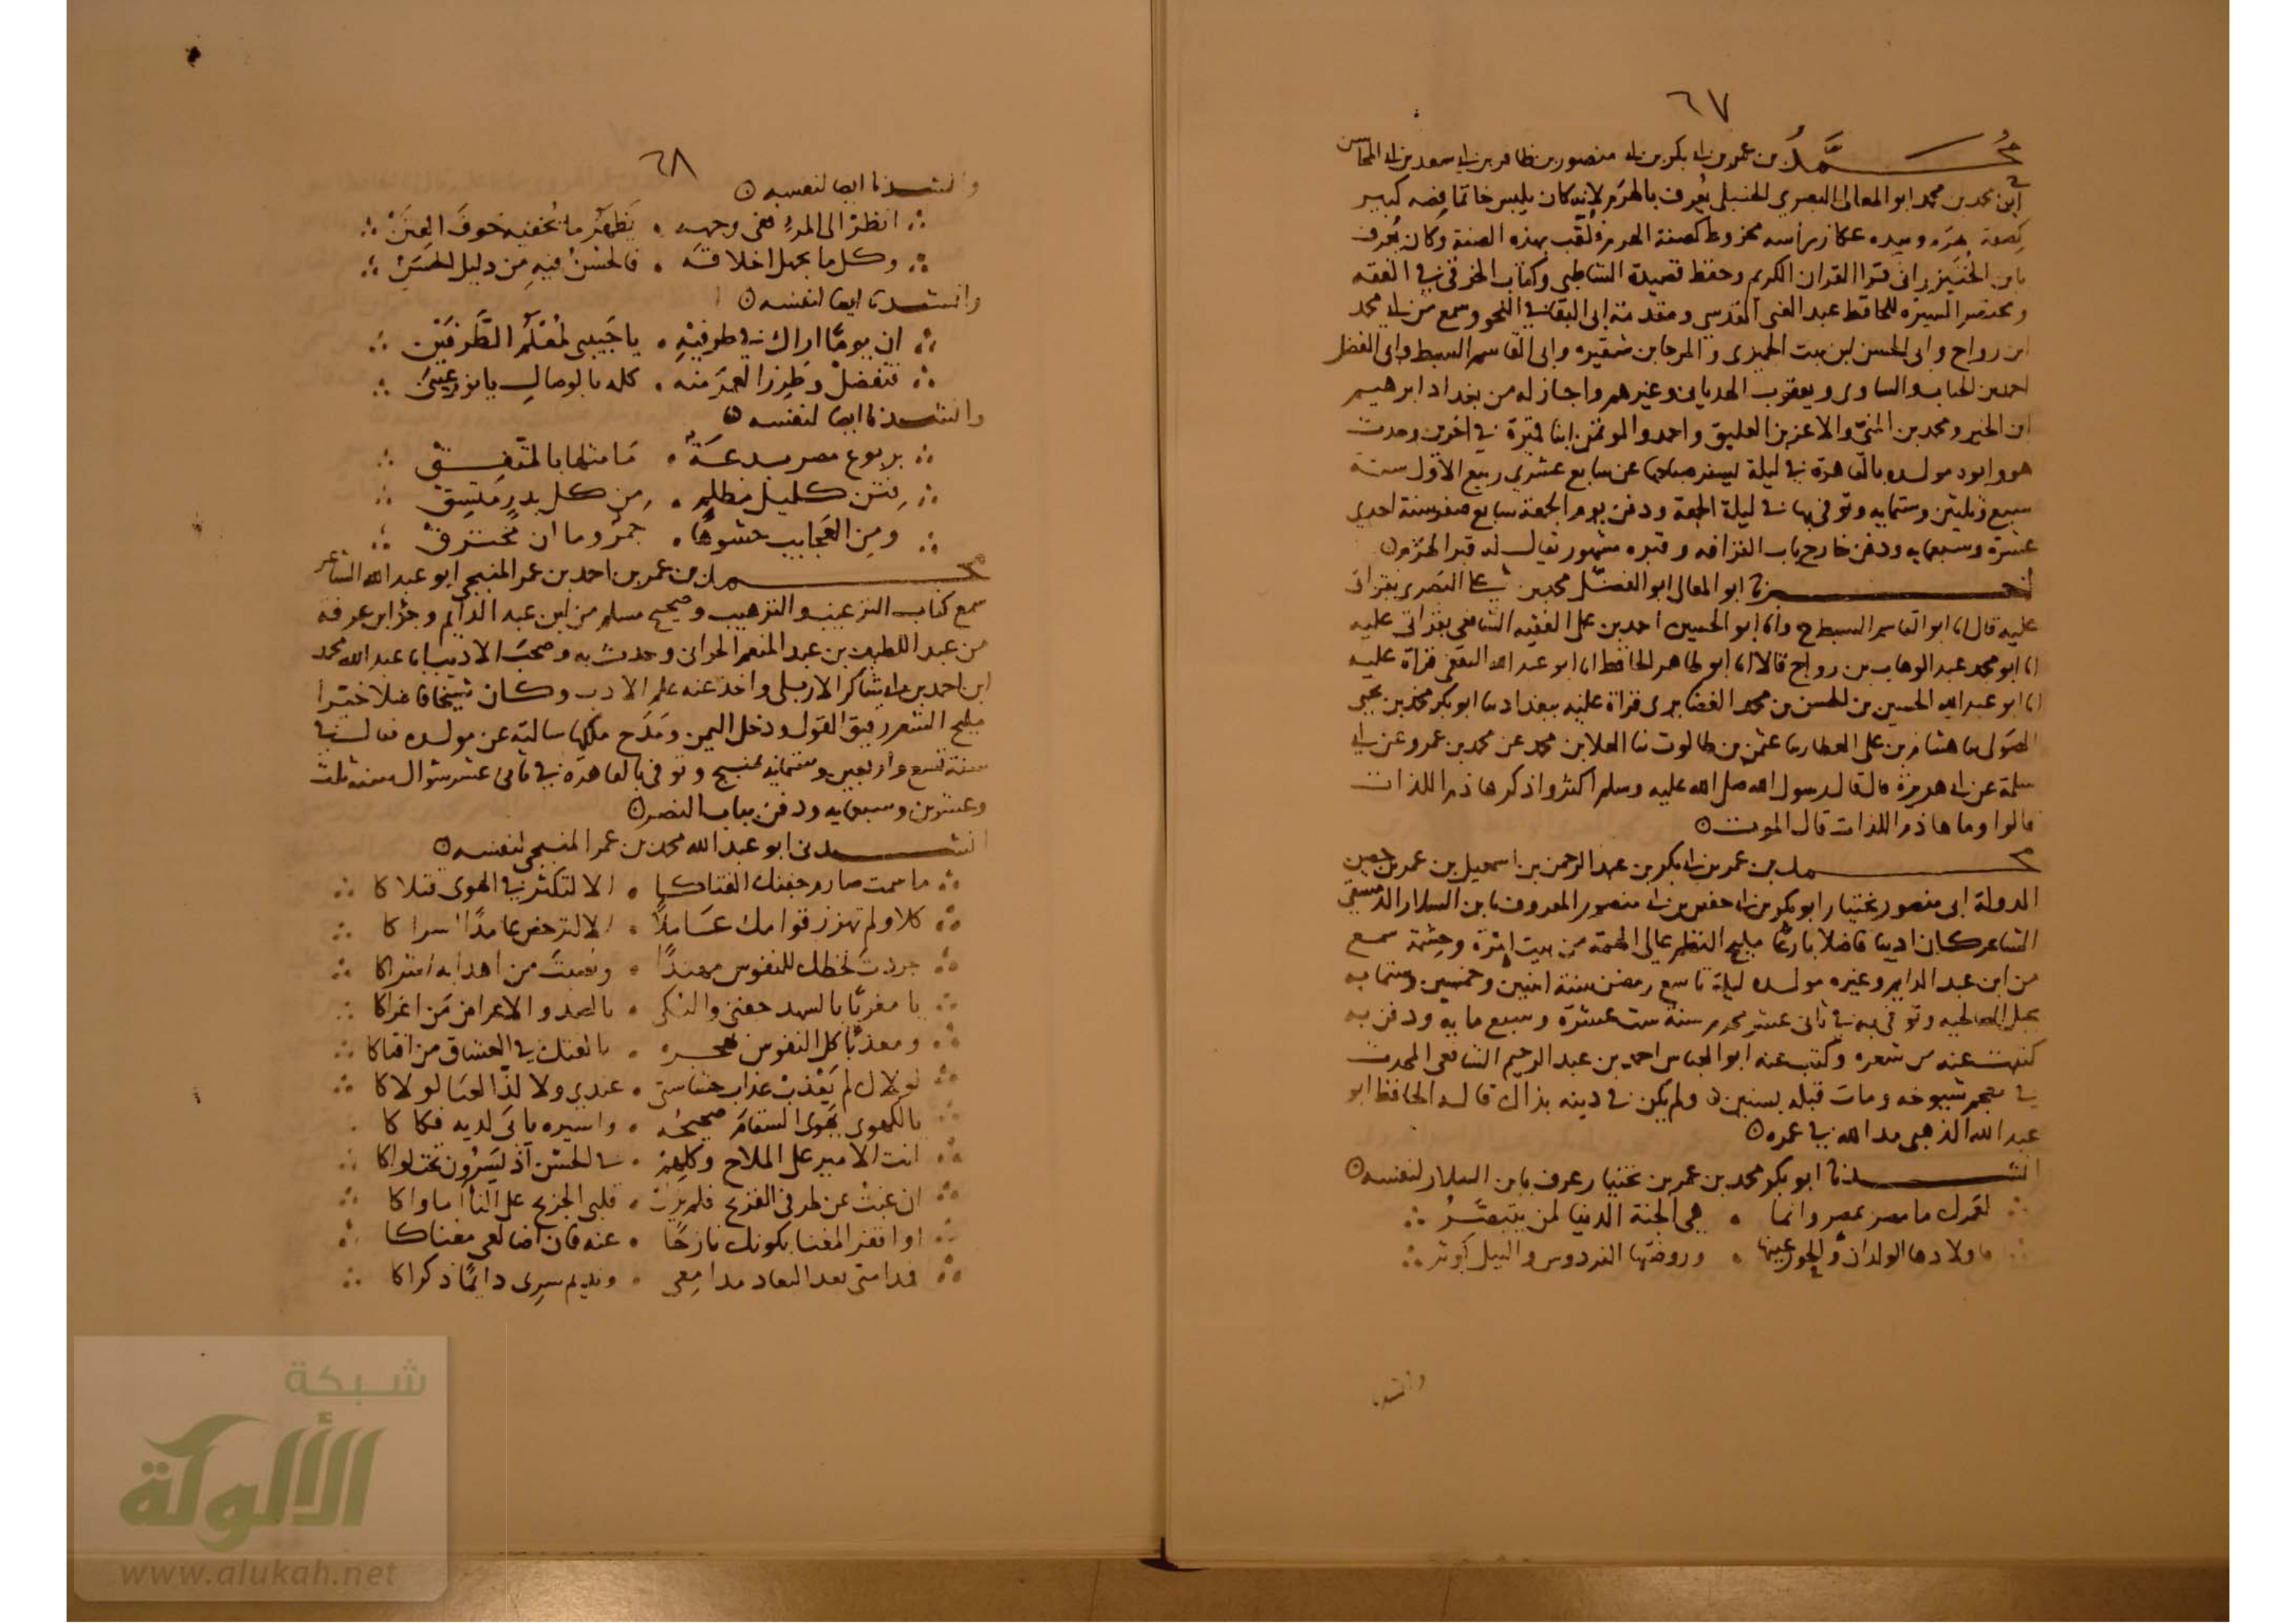 ٦٧
محمد بن عمر بن ابي بكر بن ابي منصور بن ظافر بن ابي سعد بن ابي المحاسن
ابن محمد بن محمد ابو المعالي البصري الحنبلي يعرف بالهرم لانه كان يلبس خاتما فصه كبير
كصفة هرم وبيده عكاز براسه مخروط كصفة الهرم فلقب بهذه الصفة وكان يعرف
بابن قرا القران الكريم وحفظ قصيدة الشاطبي وكتاب الخرقي في الفقه
ومختصر السيره للحافظ عبد الغني المقدسي ومقدمة ابي البقا في النحو وسمع من ابي محمد
ابن رواج وابي الحسن ابن بنت الجميزى والمرجا بن شقيره وابي القاسم السبط وابي الفضل
احمد بن الحباب والساوى ويعقوب الهدباني وغيرهم واجاز له من بغداد ابرهيم
ابن الخير ومحمد بن المني والاعز بن العليق واحمد والمؤتمن ابنا قميرة في اخرين وحدث
هو وابوه مولده بالقاهرة في ليلة يسفر صباحها عن سابع عشري ربيع الاول سنة
سبع وثلثين وستمايه وتوفي بها في ليلة الجمعة ودفن يوم الجمعة سابع صفر سنة احدى
عشرة وسبعمايه ودفن خارج باب القرافه وقبره مشهور يقال له قبر الهرم
اخبرنا ابو المعالي ابو الفضل محمد بن علي البصري بقراتي
عليه قال انا ابو القاسم السبط ح وانا ابو الحسين احمد بن علي الفقيه الشافعي بقراتي عليه
انا ابو محمد عبد الوهاب بن رواج قالا انا ابو طاهر الحافظ انا ابو عبد الله الثقفي قراة عليه
انا ابو عبد الله الحسين بن الحسن بن محمد الغضايرى قراة عليه ببغداد ثنا ابو بكر محمد بن يحيى
الصولي ثنا هشام بن علي العطار ثنا عثمن بن طالوت ثنا العلا بن محمد عن محمد بن عمرو عن ابي
سلمة عن ابي هريرة قال قال رسول الله صلى الله عليه وسلم اكثروا ذكر هاذم اللذات
قالوا وما هاذم اللذات قال الموت
محمد بن عمر بن ابي بكر بن عبد الرحمن بن اسمعيل بن عمر بن
الدولة ابي منصور بختيار ابو بكر بن ابي حفص بن ابي منصور المعروف بابن السلار الدمشقي
الشاعر كان اديبا فاضلا بارعا مليح النظم عالي الهمة من بيت امرة وحشمة سمع
من ابن عبد الدايم وغيره مولده ليلة تاسع رمضن سنة اثنين وخمسين وستمايه
بجبل الصالحيه وتوفي به في ثاني عشر محرم سنة ست عشرة وسبع مايه ودفن به
كتبت عنه من شعره وكتب عنه ابو العباس احمد بن عبد الرحيم الشافعي المحدث
في معجم شيوخه ومات قبله بسنين ولم يكن في دينه بذاك قاله الحافظ ابو
عبد الله الذهبي مد الله في عمره
انشدنا ابو بكر محمد بن عمر بن بختيار عرف بابن السلار لنفسه
لعمرك ما مصر بمصر وانما ∴ هي الجنة الدنيا لمن يتبصر
فاولادها الولدان والحور عينها ∴ وروضتها الفردوس والنيل كوثر
وانشدنا
٦٨
وانشدنا ايضا لنفسه
انظر الى المرء ففي وجهه ∴ يظهر ما يخفيه خوف الفتن
وكل ما يجهل اخلاقه ∴ فالحسن فيه من دليل الحسن
وانشدنا ايضا لنفسه
ان يوما اراك في طرفيه ∴ يا حبيبي لمعلم الطرفين
فتفضل وطرز العمر منه ∴ كله بالوصال يا نور عيني
وانشدنا ايضا لنفسه
بربوع مصر ∴ ما مثلها بالمتفق
كليل مظلم ∴ من كل بدر متسق
ومن العجايب حشوها ∴ جمر وما ان تحترق
محمد بن عمر بن احمد بن عمر المنبجي ابو عبد الله الشاعر
سمع كتاب الترغيب والترهيب وصحيح مسلم من ابن عبد الدايم وجزء ابن عرفة
من عبد اللطيف بن عبد المنعم الحراني وحدث به وصحب الاديب ابا عبد الله محمد
ابن احمد بن ابي شاكر الاربلي واخذ عنه علم الادب وكان شيخا فاضلا خيرا
مليح الشعر رقيق القول ودخل اليمن ومدح ملكها سالته عن مولده فقال لي
سنة تسع واربعين وستمايه بمنبج وتوفي بالقاهرة في ثامن عشر شوال سنة ثلث
وعشرين وسبعمايه ودفن بباب النصر
انشدني ابو عبد الله محمد بن عمر المنبجي لنفسه
ما سمت صارم جفنك الفتاكا ∴ الا لتكثر في الهوى قتلاكا
كلا ولم تهزز قوامك عاملا ∴ الا لترحض عامدا اسراكا
جردت لحظك للنفوس مهندا ∴ ونصبت من اهدابه اشراكا
يا مغريا بالسهد جفني والبكى ∴ بالصد والاعراض من اغراكا
ومعذبا كل النفوس بهجره ∴ بالفتك في العشاق من افتاكا
لولاك لم يعذب عذاب حشاشتي ∴ عندي ولا لذ الضنا لولاكا
يالهوى يهوى السقام صحيحه ∴ واسيره يابى لديه فكاكا
انت الامير على الملاح وكلهم ∴ في الحسن اذ يسرون تحت لواكا
ان غبت عن طرفي القريح فلم يزل ∴ قلبي الجريح على النا ماواكا
او اقفر المغنا بكونك نازحا ∴ عنه فان اضالعي مغناكا
فدامتي بعد البعاد مدامعي ∴ ونديم سري دايما ذكراكا
شبكة
الألوكة
www.alukah.net